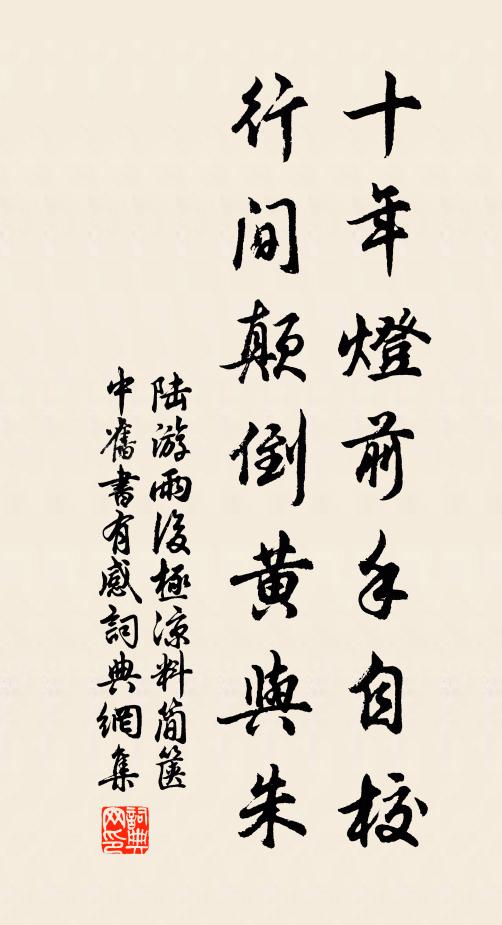 十年燈前手自校
行间顛倒黄與朱
陆游雨後極凉料简箧
中舊書有感詞典網集
詞典网印